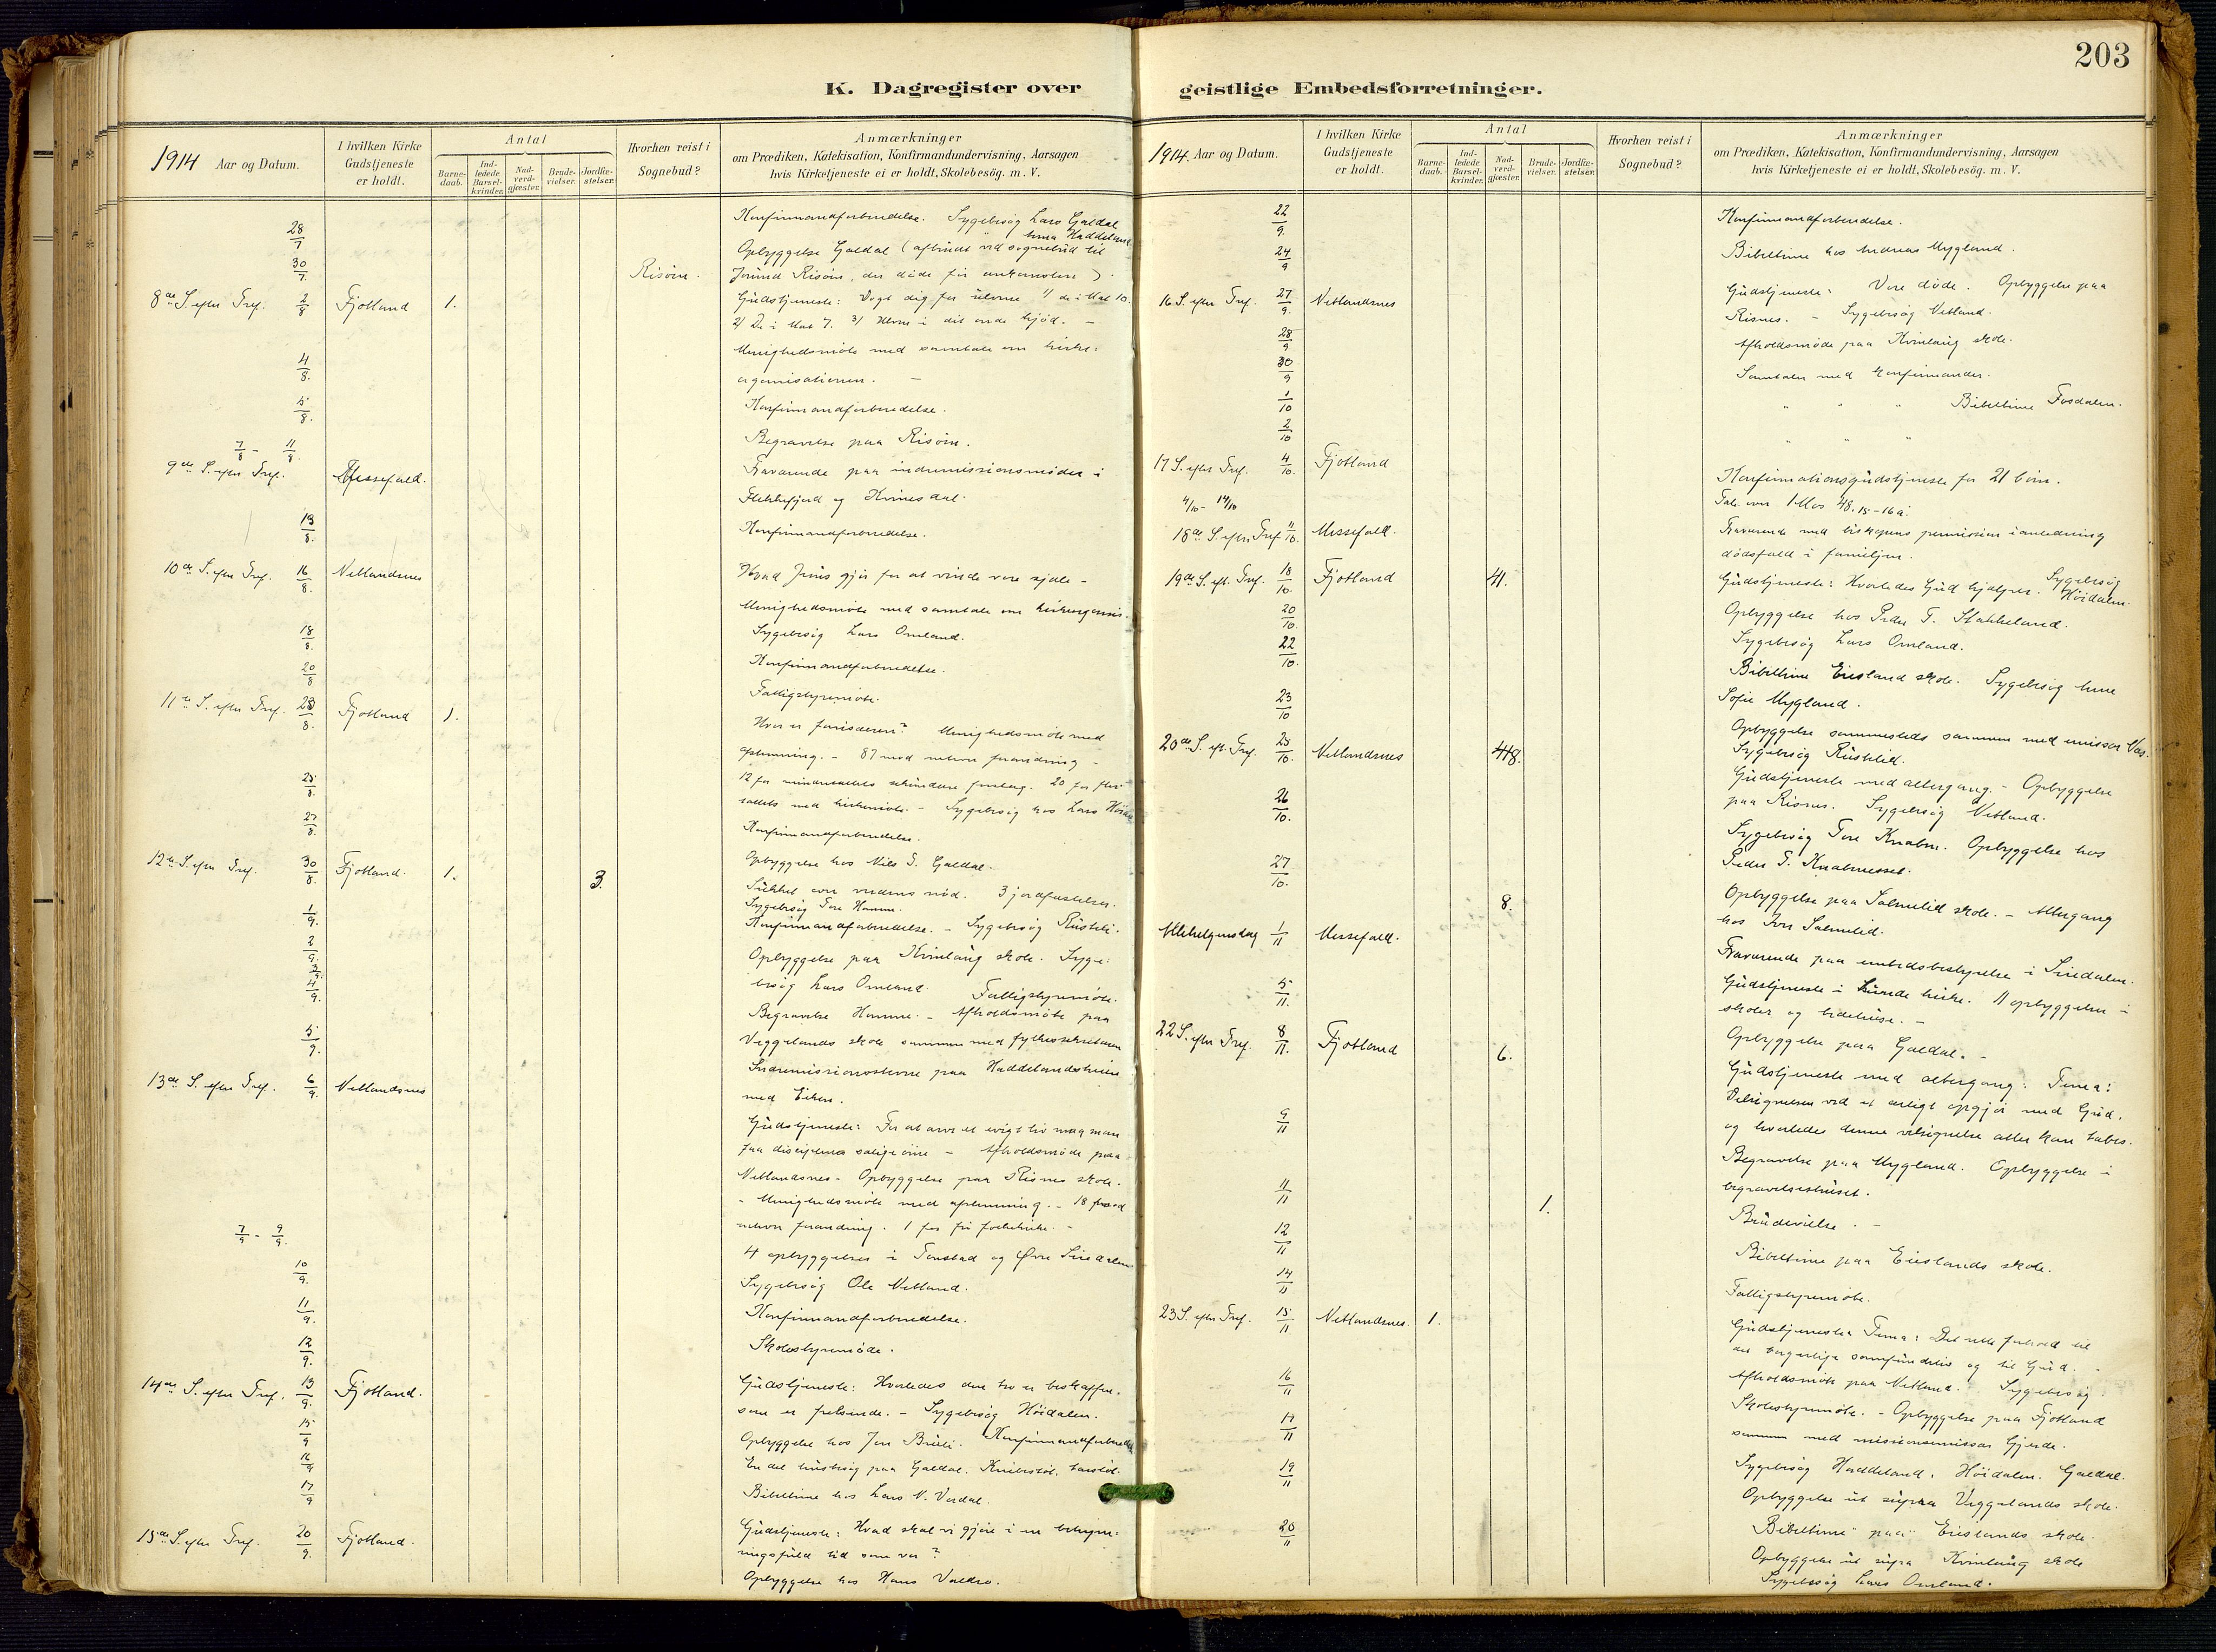 203
K. Dagregister over geistlige Embedsforretninger.
1914 Aar og Datum.
I hvilken Kirke Gudstjeneste er holdt.
Antal
Barnedaab.
Indledede Barselkvinder.
Nadverdgjæster.
Brudevielser.
Jordfæstelser.
Hvorhen reist i Sognebud?
Anmærkninger
om Prædiken, Katekisation, Konfirmandundervisning, Aarsagen
hvis Kirketjeneste ei er holdt, Skolebesög. m. V.
28/7 Konfirmandforberedelse. Sygebesøg Lars Galdal
Haddeland
30/7 Risöin. Opbyggelse Galdal (afbrudt ved sognebud til
Jorund Risöin, der døde før ankomsten).
8de S. efter Tref. 2/8 Fjotland 1. Gudstjeneste: Vogt dig for ulvene 1/ de i Mat 10.
2/ De i Mat 7. 3/ Ulven i dit onde kjød. –
4/8. Menighedsmöte med samtale om kirke-
organisationen. –
5/8. Konfirmandforberedelse.
Begravelse paa Risöin.
7/8 - 11/8.
9de S. efter Tref. Messefald. Fraværende paa indremissionsmöder i
Flekkefjord og Kvinesdal.
13/8. Konfirmandforberedelse.
10de S. efter Tref. 16/8. Netlandsnes Hvad Jesus gjör for at vinde vore sjæle –
Menighedsmöte med samtale om kirkeorganis.
18/8. Sygebesög Lars Omland.
20/8 Konfirmandforberedelse.
Fattigstyremöte.
11te S. efter Tref. 23/8. Fjotland 1. Hvor er farisæeren? Menighedsmöte med
afstemning. – 87 mod enhver forandring –
12 for mindretallets sekundære forslag. 20 for fler-
tallets med kirkemöte. – Sygebesög hos Lars
25/8. Konfirmandforberedelse.
27/8. Opbyggelse hos Nils T. Galdal.
12te S. efter Tref. 30/8. Fjotland. 1. 3. Sukket over verdens nöd. 3 jordfæstelser.
Sygebesög Tore Homme.
1/9. Konfirmandforberedelse. – Sygebesög Rustli.
2/9. Opbyggelse paa Kvinlaug skole. Syge-
3/9. besög Lars Omland. Fattigstyremöte.
4/9. Begravelse Homme. – Afholdsmöte paa
Veggelands skole sammen med fylkessekretæren
5/9. Indremissionsstevne paa Haddelandsheien
med Eiken.
13de S. efter Tref. 6/9. Netlandsnes
Gudstjeneste: For at arve et evigt liv maa man
faa disciplenes salige öine – Afholdsmöde paa
Netlandsnes – Opbyggelse paa Risnes skole.
– Menighedsmöte med afstemning. – 18 mod
enhver forandring. 1 for fri folkekirke. –
7/9 - 9/9. 4 opbyggelser i Tonstad og Övre Siredalen
10/9. Sygebesög Ole Netland.
11/9. Konfirmandforberedelse.
12/9. Skolestyremöde.
14de S. efter Tref. 13/9. Fjotland. Gudstjeneste: Hvorledes den tro er beskaffen,
som er frelsende. – Sygebesög Höidalen.
15/9 Opbyggelse hos Jon Bruli. Konfirmandforbered
16/9 En del husbesög paa Galdal,
17/9 Bibeltime hos Lars N. Verdal.
15de S. efter Tref. 20/9. Fjotland. Gudstjeneste: Hvad skal vi gjöre i en bekym-
ringsfuld tid som vor?
Opbyggelse hos Hans Valdro.
1914. Aar og Datum.
I hvilken Kirke Gudstjeneste er holdt.
Antal
Barnedaab.
Indledede Barselkvinder.
Nadverdgjæster.
Brudevielser.
Jordfæstelser.
Hvorhen reist i Sognebud?
Anmærkninger
om Prædiken, Katekisation, Konfirmandundervisning, Aarsagen
hvis Kirketjeneste ei er holdt, Skolebesög. m. V.
22/9. Konfirmandforberedelse.
24/9 Bibeltime hos Andreas Mygland.
16 S. efter Tref. 27/9. Netlandsnes Gudstjeneste: Vore døde. Opbyggelse paa
Risnes. – Sygebesög Netland.
28/9 Afholdsmöde paa Kvinlaug skole.
30/9 Samtaler med konfirmander.
1/10 " " " Bibeltime Fosdalen.
2/10 " " "
17 S. efter Tref. 4/10. Fjotland Konfirmationsgudstjeneste for 21 börn.
Tale over 1 Mos 48.15-16a.
4/10 - 14/10
18de S. efter Tref 11/10. Messefald. Fraværende med biskopens permission i anledning
dödsfald i familjen.
19de S. eft. Tref. 18/10. Fjotland 41. Gudstjeneste: Hvorledes Gud hjælper. Sygebesög Höidalen.
20/10. Opbyggelse hos Peder T. Stakkeland.
22/10. Sygebesög Lars Omland.
Bibeltime Eiesland skole. Sygebesög
Sofie Mygland.
23/10 Opbyggelse sammesteds sammen med emissær
Sygebesög Rustlid.
20de S. eft. Tref. 25/10. Netlandsnes 48. Gudstjeneste med altergang. – Opbyggelse
paa Risnes. Sygebesög Netland.
26/10. Sygebesög Tore Knaben. Opbyggelse hos
Peder T. Knabenesset.
27/10. 8. Opbyggelse paa Salmelid skole. – Altergang
hos Salmelid.
Allehelgensdag 1/11 Messefald. Fraværende paa embedsbestyrelse i Siredalen.
Gudstjeneste i Lunde kirke. 11 opbyggelser i
skoler og bedehuse. –
5/11. Opbyggelse paa Galdal. –
22 S. efter Tref. 8/11. Fjotland 6. Gudstjeneste med altergang: Tema:
Velsignelsen ved et ærligt opgjör med Gud,
og hvorledes denne velsignelse atter kan tabes.
9/11 Begravelse paa Mygland. Opbyggelse i
begravelseshuset.
11/11 1. Brudevielse. –
12/11 Bibeltime paa Eieslands skole.
14/11 Fattigstyremöte.
23 S. efter Tref. 15/11 Netlandsnes. 1. Gudstjeneste Tema: Det rette forhold til
det borgerlige samfundsliv og til Gud. –
Afholdsmöte paa Netland. Sygebesög.
16/11 Skolestyremöte. – Opbyggelse paa Fjotland
sammen med missionsemissær Gjerde.
17/11 Sygebesög Haddeland, Höidalen. Galdal.
19/11 Opbyggelse ut supra Veggelands skole.
Bibeltime paa Eieslands skole.
20/11 Opbyggelse ut supra Kvinlaug skole
Sygebesög Lars Omland.